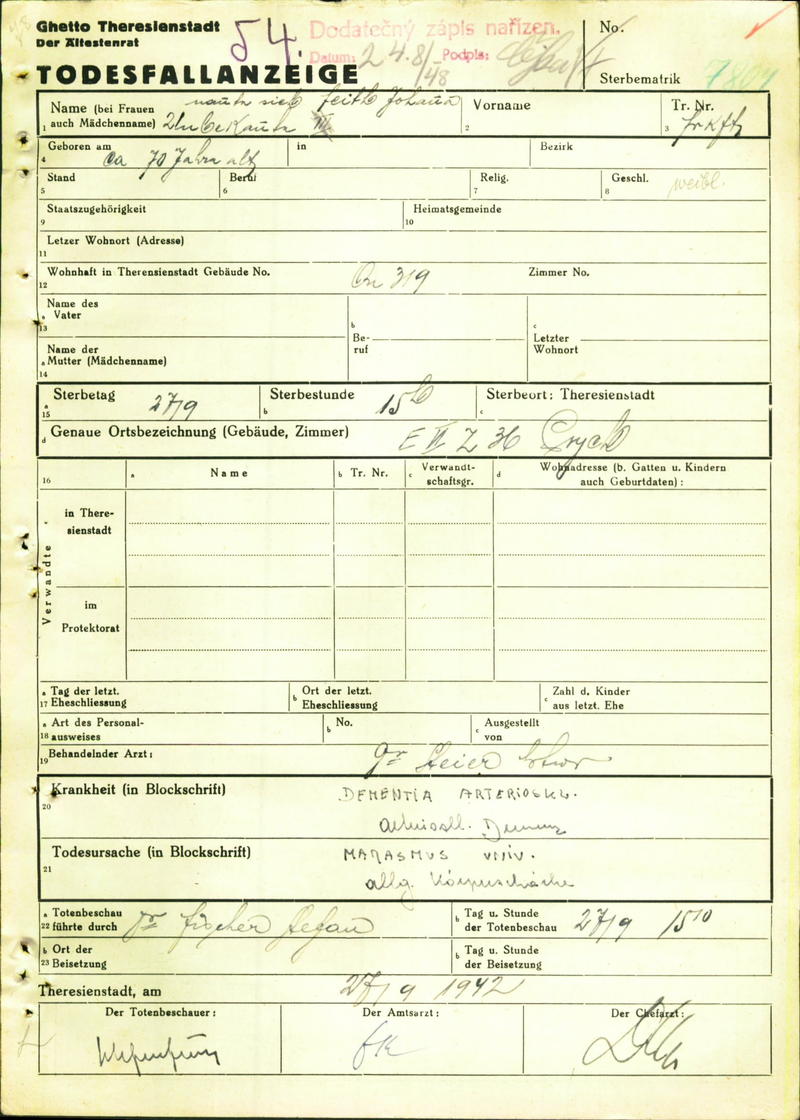 Ghetto Theresienstadt
Der Ältestenrat
54.
Dodatečný zápis nařízen.
Datum: 24.8/48 Podpis:
No.
TODESFALLANZEIGE
Sterbematrik 7804
Name (bei Frauen auch Mädchenname)
1
Unbekannt III
Vorname
2
Tr. Nr.
3
Geboren am
4
ca 70 Jahre alt
in
Bezirk
Stand
5
Beruf
6
Relig.
7
Geschl.
8
weibl.
Staatszugehörigkeit
9
Heimatsgemeinde
10
Letzer Wohnort (Adresse)
11
Wohnhaft in Therensienstadt Gebäude No.
12
319
Zimmer No.
Name des
a Vater
13
b
Be-
ruf
c
Letzter
Wohnort
Name der
a Mutter (Mädchenname)
14
Sterbetag
a
15
27/9
Sterbestunde
b
15
Sterbeort: Theresienstadt
c
d Genaue Ortsbezeichnung (Gebäude, Zimmer)
E II Z 36
16
a Name
b Tr. Nr.
c Verwandt-
schaftsgr.
d Wohnadresse (b. Gatten u. Kindern
auch Geburtdaten):
Verwandte
in There-
sienstadt
im
Protektorat
a Tag der letzt.
17 Eheschliessung
b Ort der letzt.
Eheschliessung
c Zahl d. Kinder
aus letzt. Ehe
a Art des Personal-
18 ausweises
b No.
c Ausgestellt
von
Behandelnder Arzt:
19
Krankheit (in Blockschrift)
20
DEMENTIA ARTERIOSKL.
Todesursache (in Blockschrift)
21
MARASMUS UNIV.
allg. Körperschwäche
a Totenbeschau
22 führte durch
Dr Fischer
b Tag u. Stunde
der Totenbeschau
27/9 15 10
b Ort der
23 Beisetzung
b Tag u. Stunde
der Beisetzung
Theresienstadt, am 27/9 1942
Der Totenbeschauer:
Der Amtsarzt:
Der Chefarzt: